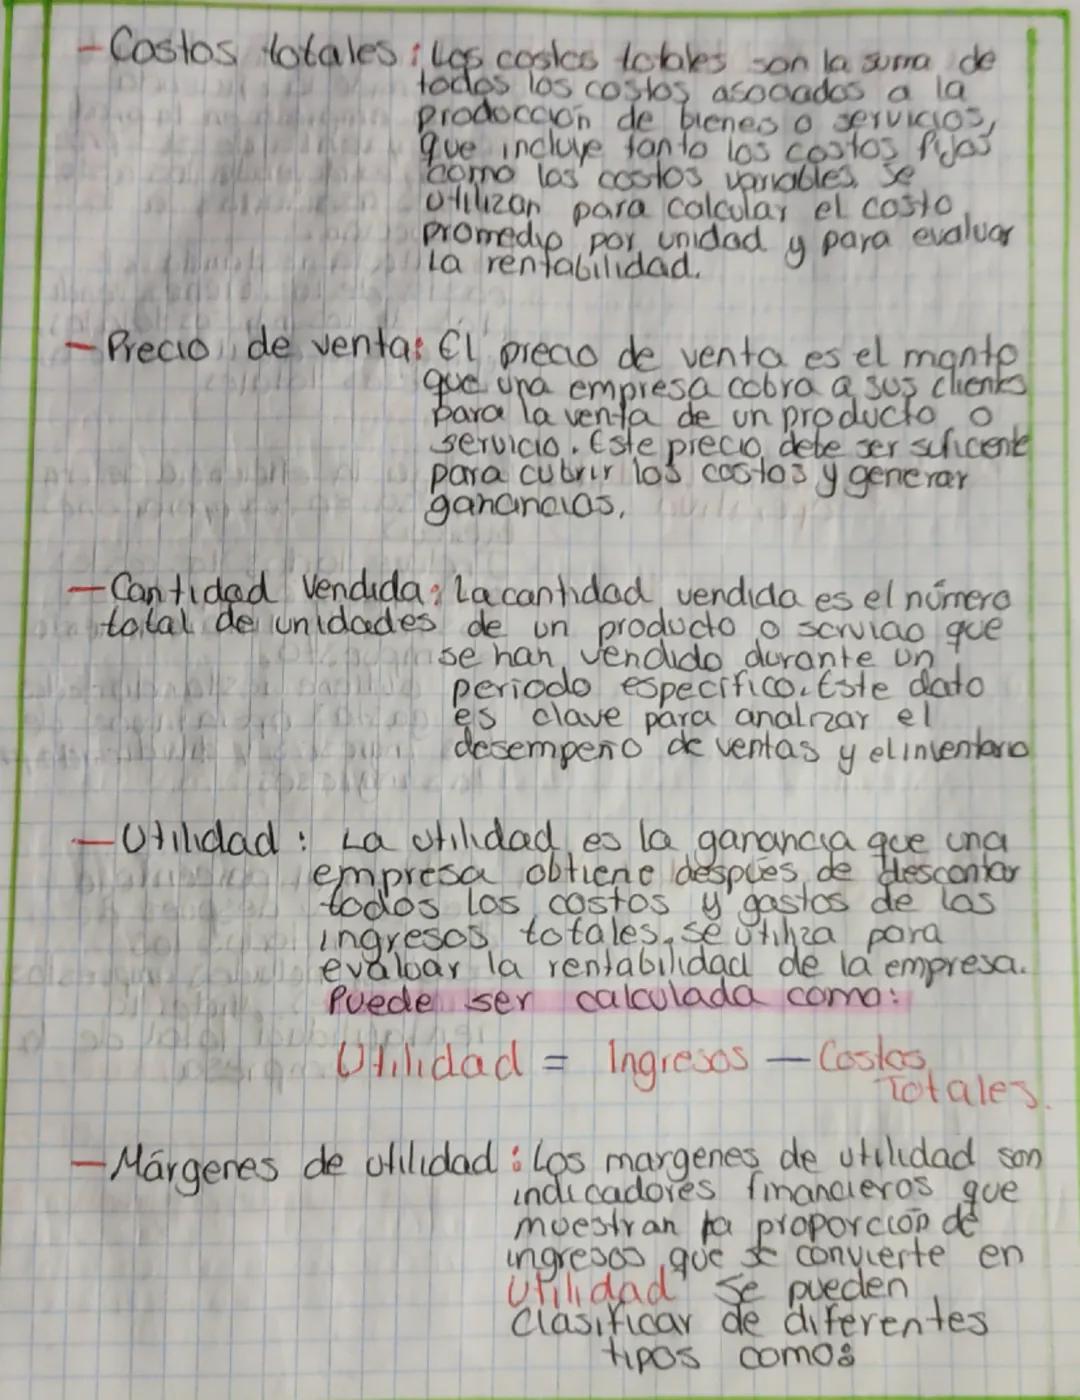 - Costos totales: Los costos totales son la suma de
todos los costos asociados a la
producción de bienes o servicios,
que incluye tanto los costos fijos
como los costos variables. Se
utilizan para calcular el costo
promedio por unidad y para evaluar
la rentabilidad.
- Precio de venta: El precio de venta es el monto
que una empresa cobra a sus clientes
para la venta de un producto o
servicio. Este precio debe ser suficente
para cubrir los costos y generar
ganancias.
- Cantidad Vendida: La cantidad vendida es el número
total de unidades de un producto o servicio que
se han vendido durante un
periodo específico. Este dato
es clave para analizar el
desempeño de ventas y el inventario
- Utilidad: La utilidad es la ganancia que una
empresa obtiene después de descontar
todos los costos y gastos de los
ingresos totales. Se utiliza para
evaluar la rentabilidad de la empresa.
Puede ser calculada como:
Utilidad = Ingresos - Costos
Totales.
- Márgenes de utilidad: Los margenes de utilidad son
indicadores financieros que
muestran la proporción de
ingresos que se convierte en
utilidad Se pueden
Clasificar de diferentes
tipos como: